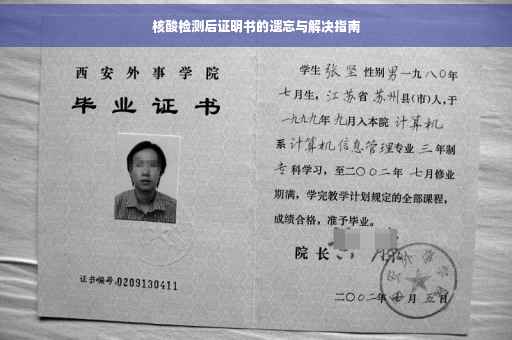 核酸检测后证明书的遗忘与解决指南
西安外事学院
毕业证书
证书编号:0209130411
学生 张坚 性别 男 一九八〇年
七月生，江苏省 苏州县(市)人，于
一九九九年 九月入本院 计算机
系 计算机信息管理专业 三 年制
专科学习，至二〇〇二年 七月修业
期满，学完教学计划规定的全部课程，
成绩合格，准予毕业。
院长
二〇〇二年 月 五日